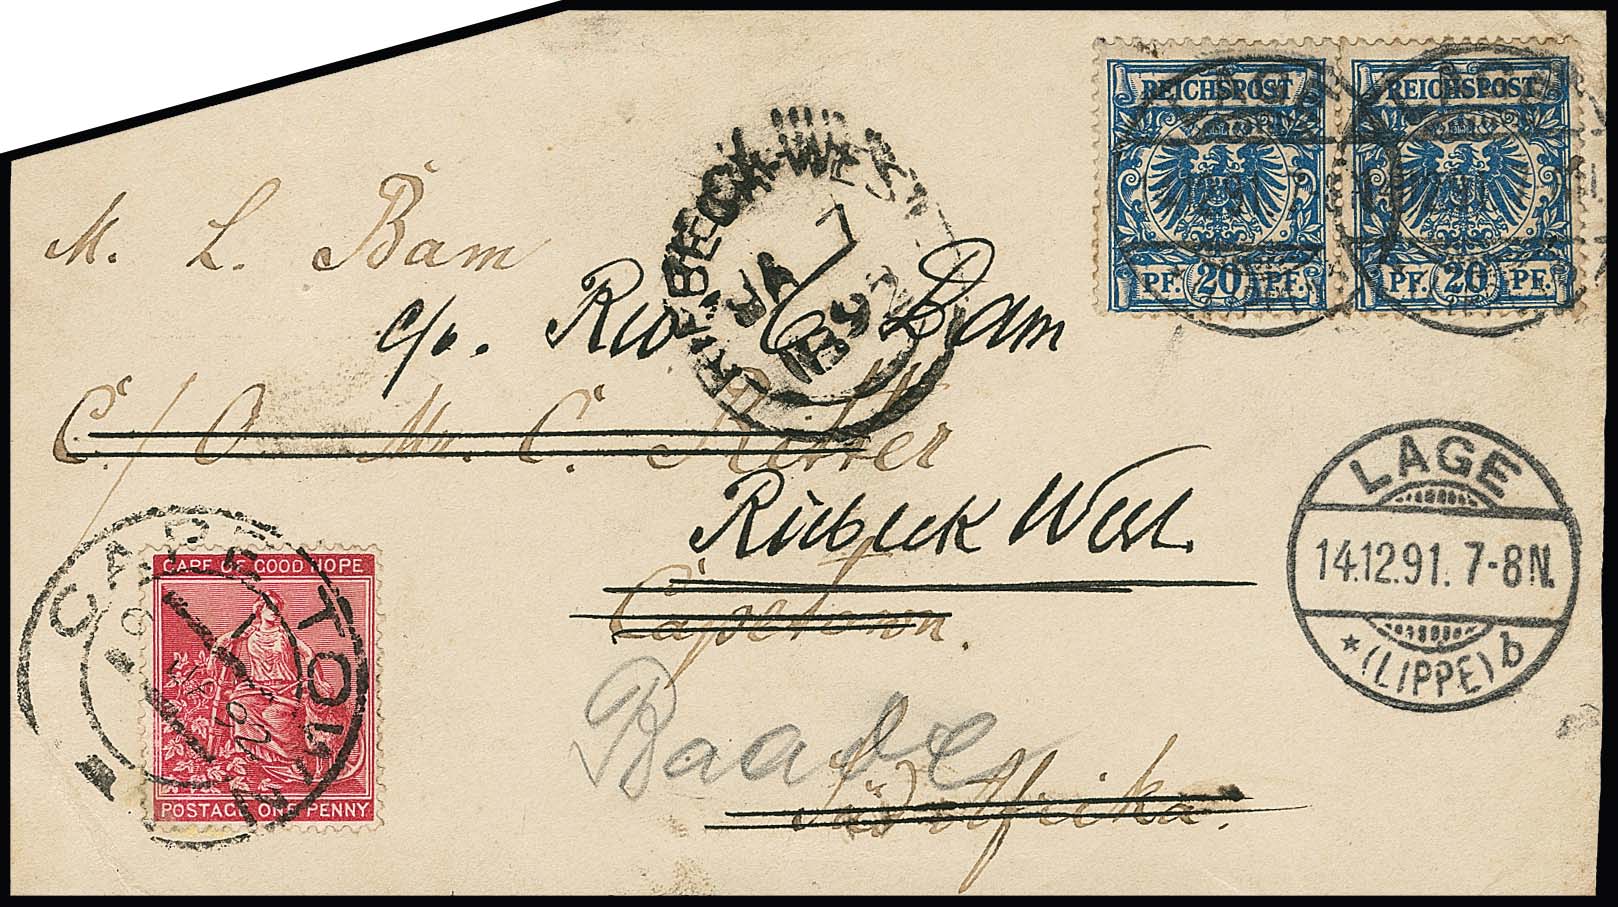 REICHSPOST REICHSPOST
PF. 20 PF. PF. 20 PF.
M. L. Bam
BECK-WEST
JA 7
1892
c/o. Rev C Bam
C./O. Mr. C. Ritter
LAGE
14.12.91. 7-8N.
* (LIPPE) b
Ribeek West.
Capetown.
CAPE TOWN
92
CAPE OF GOOD HOPE
POSTAGE ONE PENNY
Baade
Südafrika.